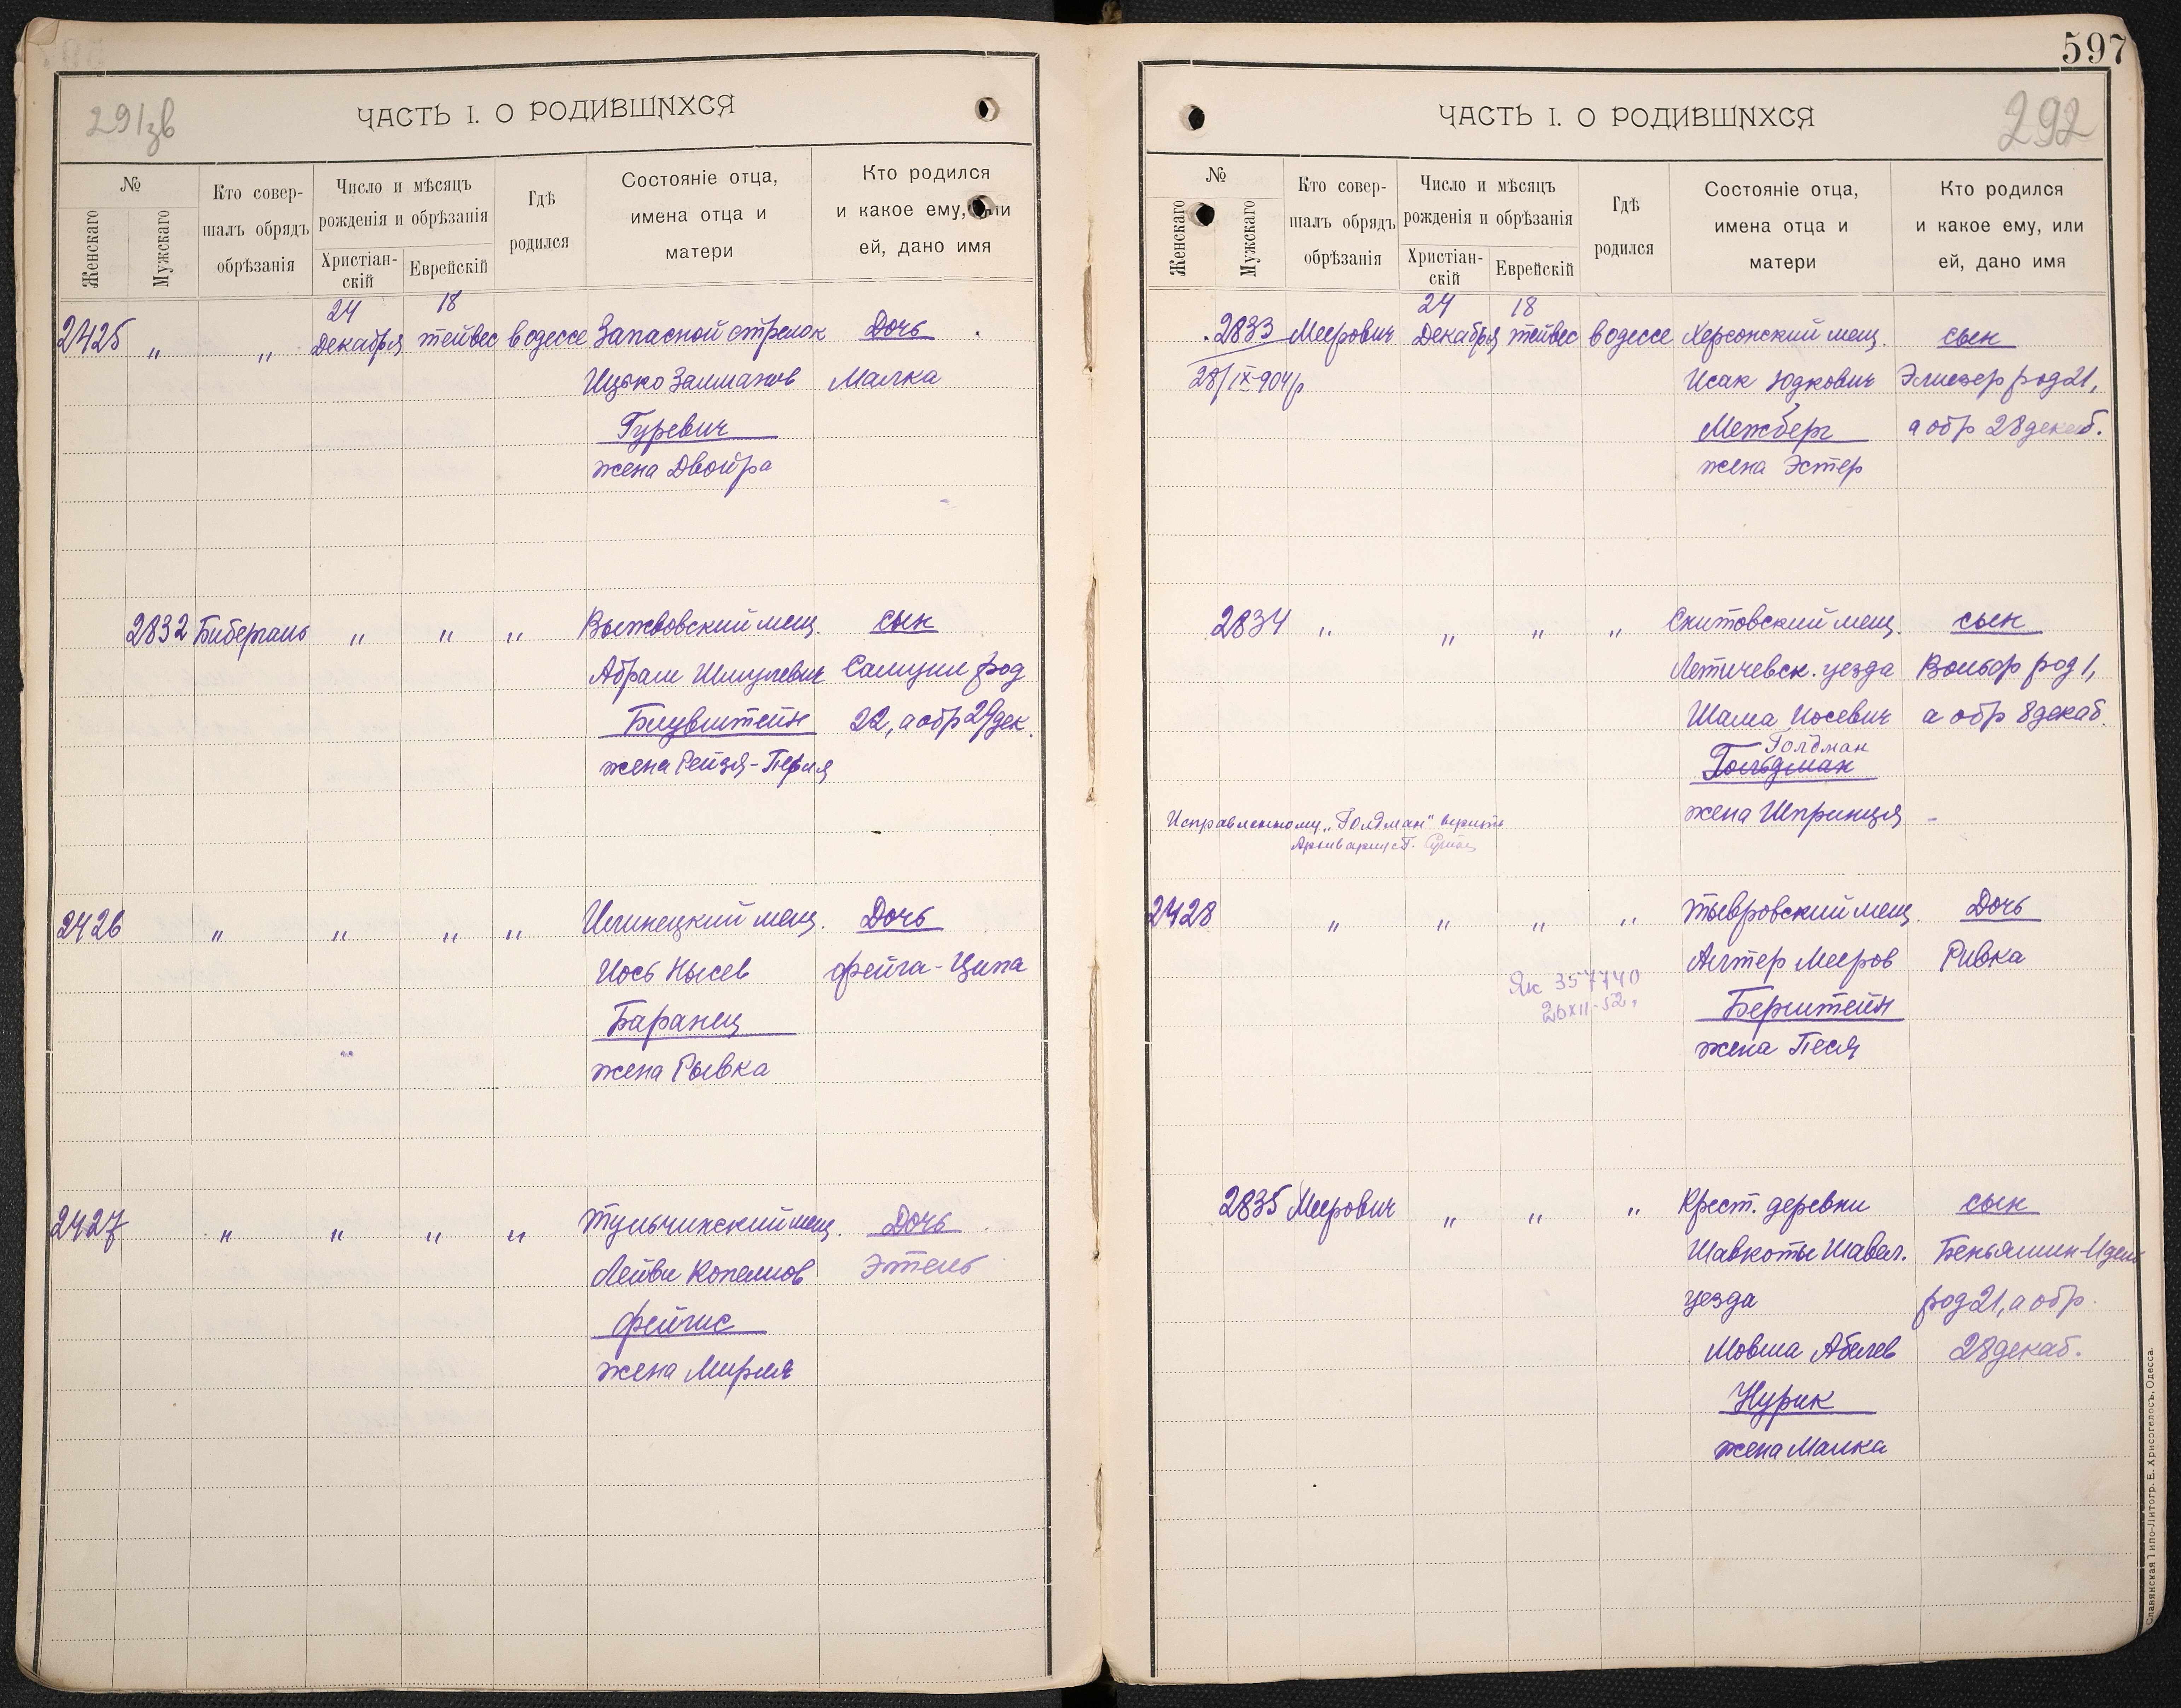 291зв
ЧАСТЬ I. О РОДИВШИХСЯ
№
Женскаго
Мужскаго
Кто совер-
шалъ обрядъ
обрѣзанія
Число и мѣсяцъ
рожденія и обрѣзанія
Христіан-
скій
Еврейскій
Гдѣ
родился
Состояніе отца,
имена отца и
матери
Кто родился
и какое ему, или
ей, дано имя
24 18
2425 " " Декабря тейвес в одессе Запасной стрелок Дочь
Ицько Залманов Малка
Гуревич
жена Двойра
2832 Бибергаль " " " Выжвовский мещ. сын
Абрам Шмулевич Самуил род
Блувштейн 22, а обр 29 дек.
жена Рейзя-Перля
2426 " " " " Илинецкий мещ. Дочь
Иось Нысев Фейга-Ципа
Баранец
жена Рывка
2427 " " " " Тульчинский мещ. Дочь
Лейви Копелиов Этель
Фейгис
жена Мирля
597
292
ЧАСТЬ I. О РОДИВШИХСЯ
№
Женскаго
Мужскаго
Кто совер-
шалъ обрядъ
обрѣзанія
Число и мѣсяцъ
рожденія и обрѣзанія
Христіан-
скій
Еврейскій
Гдѣ
родился
Состояніе отца,
имена отца и
матери
Кто родился
и какое ему, или
ей, дано имя
24 18
2833 Меерович Декабря тейвес в одессе Херсонский мещ. сын
28/IX-904/р Исак Юдкович Элиезер род 21,
Межберг а обр 28 декаб.
жена Эстер
2834 " " " " Снитовский мещ. сын
Летичевск. уезда Вольф род 1,
Шама Иосевич а обр 8 декаб.
Голдман
Гольдман
жена Шпринця
Исправленному "Голдман" верить
Архивариус
2428 " " " " Тывровский мещ. Дочь
Алтер Мееров Ривка
Як 357740
26XII-52 Бернштейн
жена Песя
2835 Меерович " " " Крест. деревни сын
Шавкоты Шавел. Беньямин-Идель
уезда род 21, а обр.
Мовша Абелев 28 декаб.
Нурик
жена Малка
Славянская Типо-Литогр. Е. Хрисогелосъ, Одесса.